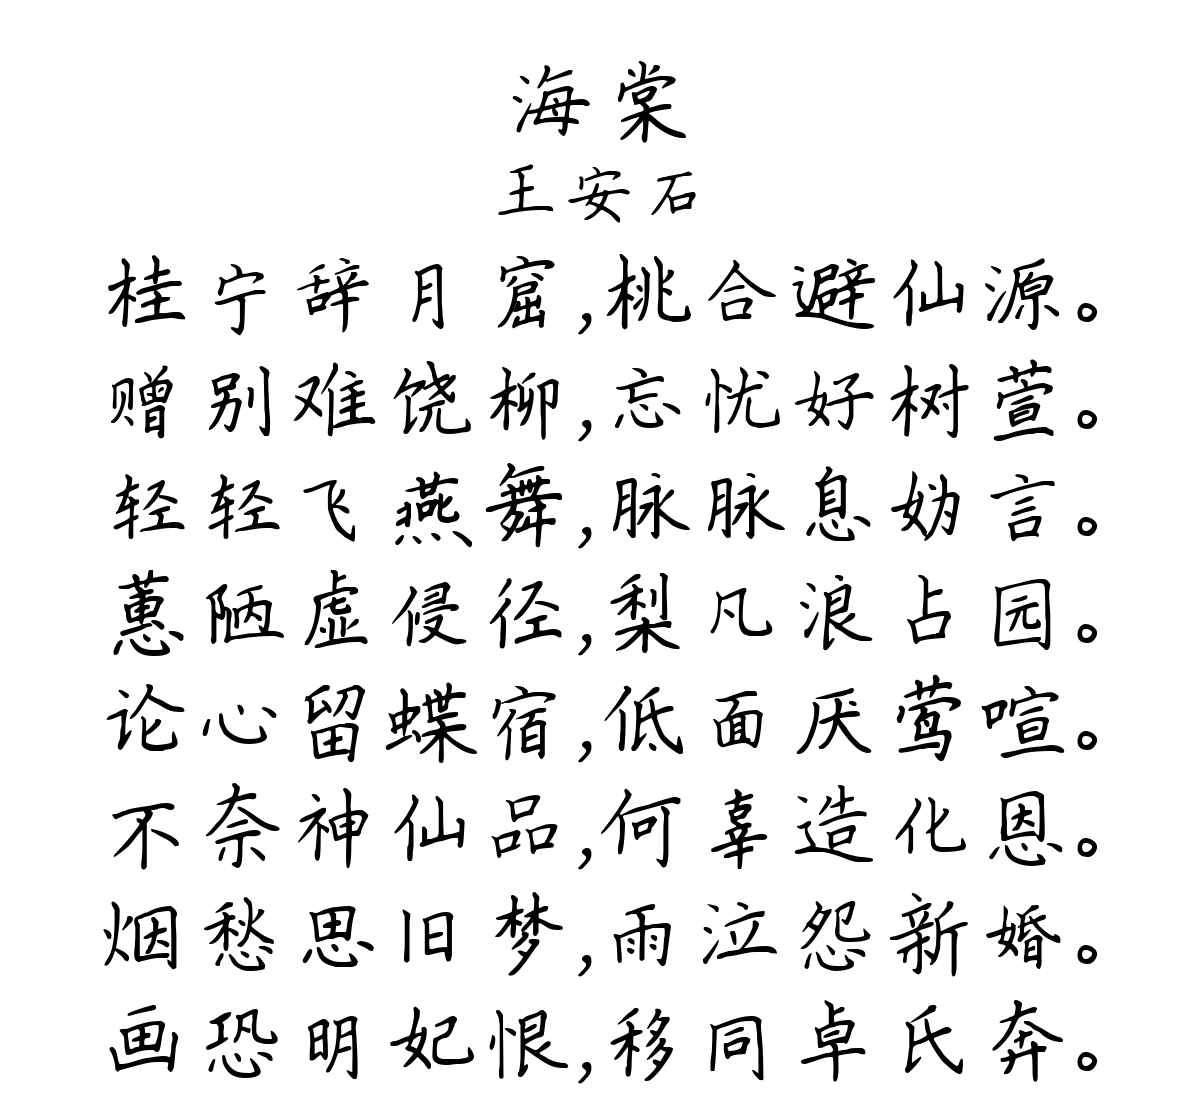 海棠
王安石
桂宁辞月窟,桃合避仙源。
赠别难饶柳,忘忧好树萱。
轻轻飞燕舞,脉脉息妫言。
蕙陋虚侵径,梨凡浪占园。
论心留蝶宿,低面厌莺喧。
不奈神仙品,何辜造化恩。
烟愁思旧梦,雨泣怨新婚。
画恐明妃恨,移同卓氏奔。